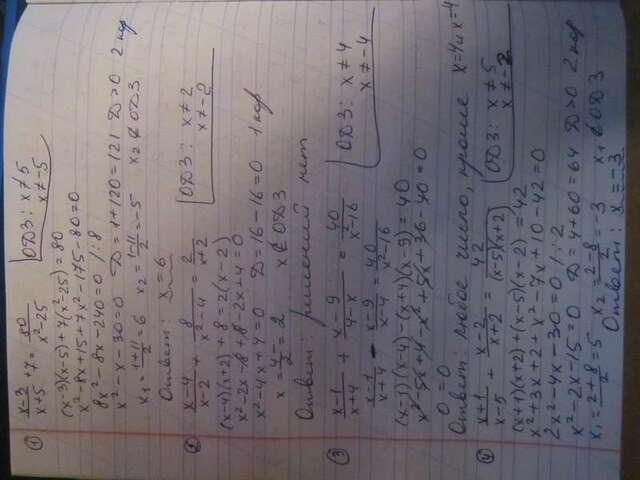 ① (x-3)/(x+5) + 7 = 80/(x²-25) ОДЗ: x≠5
x≠-5
(x-3)(x-5)+7(x²-25)=80
x²-8x+15+7x²-175-80=0
8x²-8x-240=0 /:8
x²-x-30=0 D=1+120=121 D>0 2 кор
x₁=(1+11)/2=6 x₂=(1-11)/2=-5 x₂∉ОДЗ
Ответ: x=6
② (x-4)/(x-2) + 8/(x²-4) = 2/(x+2) ОДЗ: x≠2
x≠-2
(x-4)(x+2)+8=2(x-2)
x²-2x-8+8-2x+4=0
x²-4x+4=0 D=16-16=0 1 кор
x=4/2=2 x∉ОДЗ
Ответ: решений нет
③ (x-1)/(x+4) + (x-9)/(4-x) = 40/(x²-16) ОДЗ: x≠4
x≠-4
(x-1)/(x+4) - (x-9)/(x-4) = 40/(x²-16)
(x-1)(x-4)-(x+4)(x-9)=40
x²-5x+4-x²+5x+36-40=0
0=0
Ответ: любое число, кроме x=4 и x=4
④ (x+1)/(x-5) + (x-2)/(x+2) = 42/((x-5)(x+2)) ОДЗ: x≠5
x≠-2
(x+1)(x+2)+(x-5)(x-2)=42
x²+3x+2+x²-7x+10-42=0
2x²-4x-30=0 /:2
x²-2x-15=0 D=4+60=64 D>0 2 кор
x₁=(2+8)/2=5 x₂=(2-8)/2=-3 x₁∉ОДЗ
Ответ: x=-3